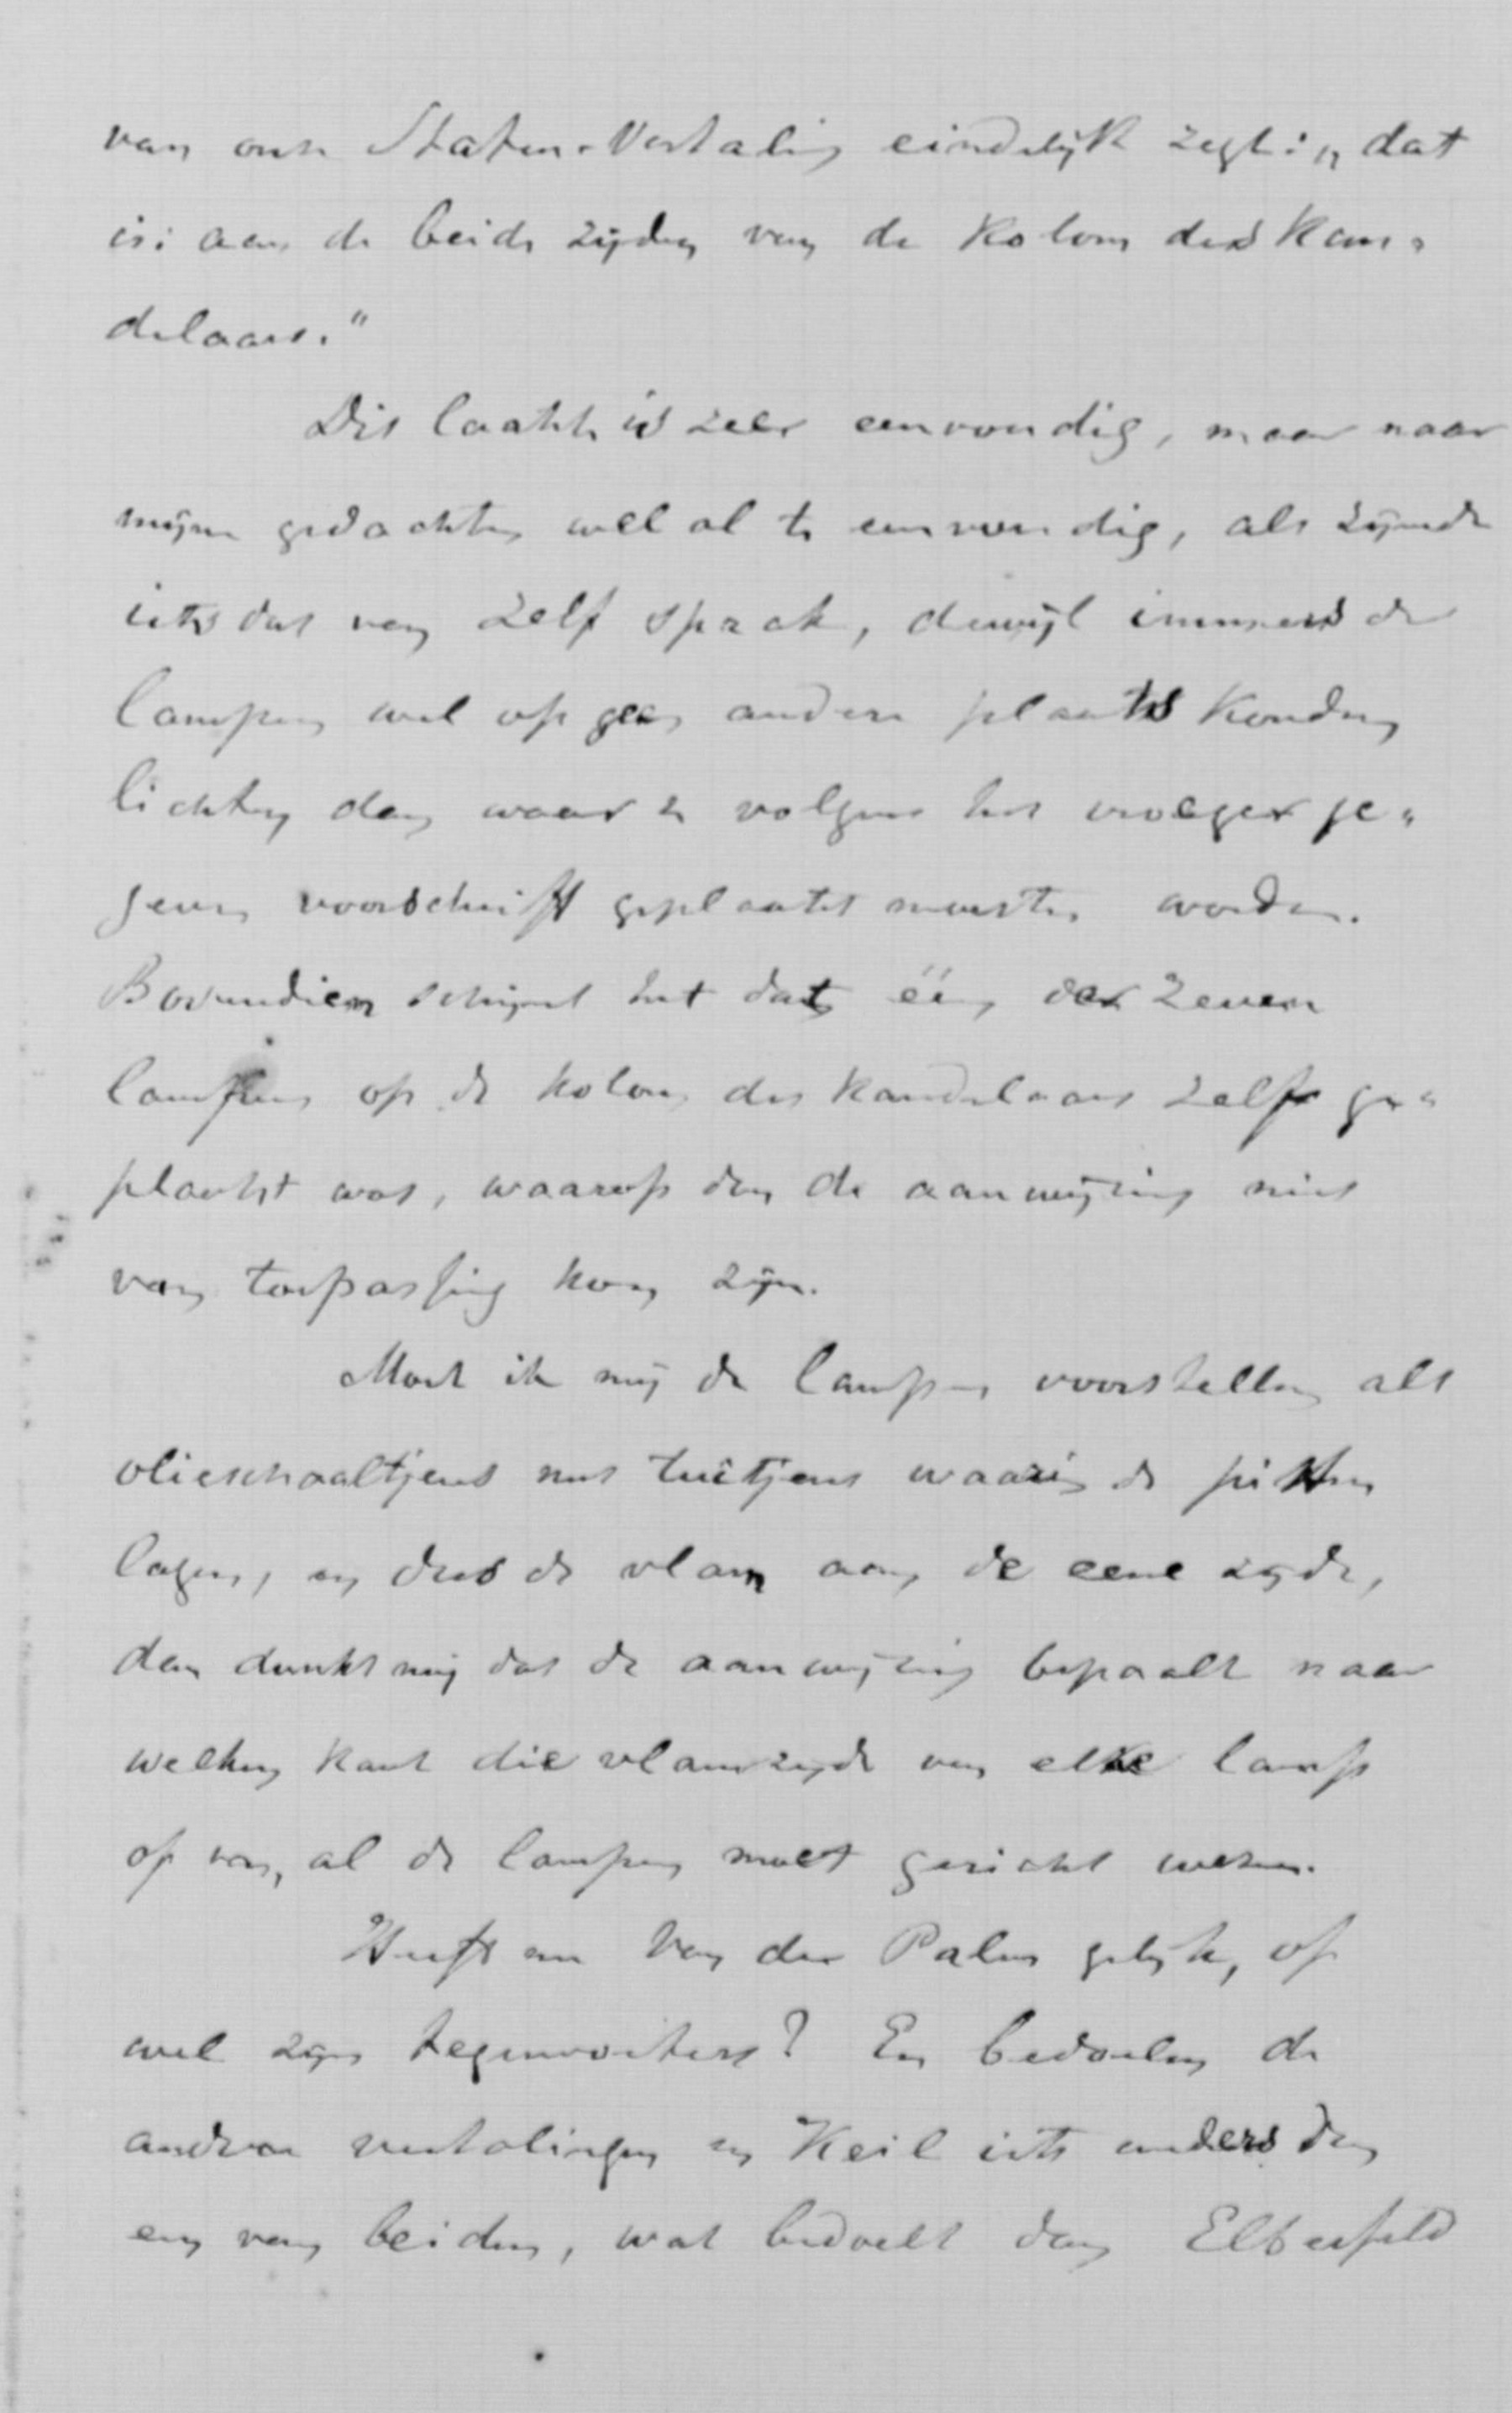 van onze Staten-Vertaling eindelijk zegt: „dat
is: aan de beide zijden van de kolom des kan-
delaars."
Dit laatste is zeer eenvoudig, maar naar
mijne gedachten wel al te eenvoudig, als zijnde
iets dat van zelf sprak, dewijl immers de
lampen wel op geen andere plaats konden
lichten dan waar ze volgens het vroeger ge-
geven voorschrift geplaatst moesten worden.
Bovendien schijnt het dat één der zeven
lampen op de kolom des kandelaars zelf ge-
plaatst was, waarop dan de aanwijzing niet
van toepassing kon zijn.
Moet ik mij de lampen voorstellen als
olieschaaltjens met tuitjens waarin de pitten
lagen, en dus de vlam aan de eene zijde,
dan dunkt mij dat de aanwijzing bepaalt naar
welken kant die vlamzijde van elke lamp
of van al de lampen moet gericht wezen.
Heeft nu Van der Palm gelijk, of
wel zijn tegenvoeters? En bedoelen de
andere vertalingen en Keil iets anders dan
een van beiden, wat bedoelt dan Elberfeld